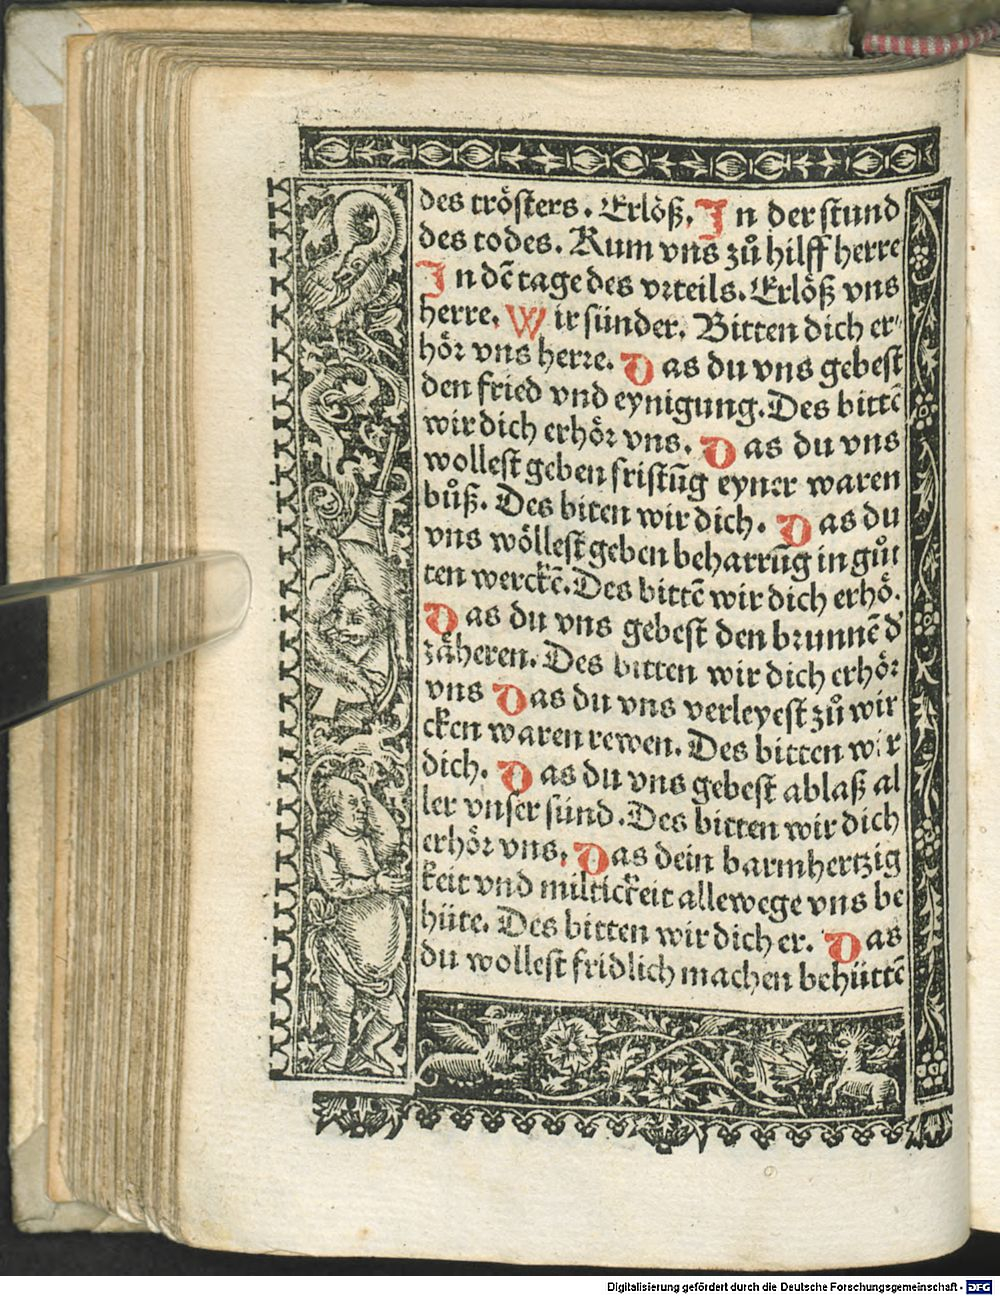 des trösters. Erlöß. In der stund
des todes. Kum vns zů hilff herre
In dē tage des vrteils. Erlöß vns
herre. Wir sünder. Bitten dich er⸗
hör vns herre. Das du vns gebest
den fried vnd eynigung. Des bittē
wir dich erhör vns. Das du vns
wollest geben fristūg eyner waren
bůß. Des biten wir dich. Das du
vns wöllest geben beharrūg in gůt
ten werckē. Des bittē wir dich erhö.
Das du vns gebest den brunnē d'
zäheren. Des bitten wir dich erhör
vns Das du vns verleyest zů wir
cken waren rewen. Des bitten wir
dich. Das du vns gebest ablaß al
ler vnser sünd. Des bitten wir dich
erhör vns. Das dein barmhertzig
keit vnd miltickeit allewege vns be
hüte. Des bitten wir dich er. Das
du wollest fridlich machen behüttē
Digitalisierung gefördert durch die Deutsche Forschungsgemeinschaft - DFG